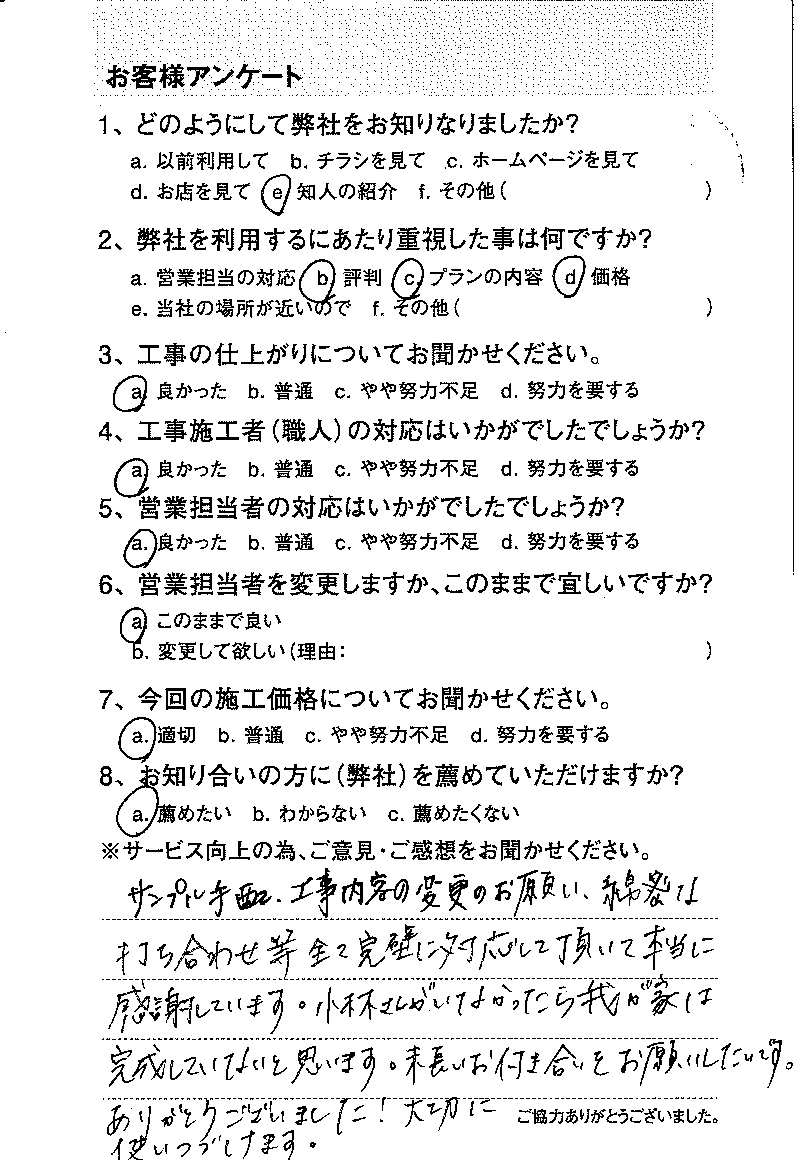 お客様アンケート
1、どのようにして弊社をお知りなりましたか?
a. 以前利用して b. チラシを見て c. ホームページを見て
d. お店を見て e 知人の紹介 f. その他( )
2、弊社を利用するにあたり重視した事は何ですか?
a. 営業担当の対応 b 評判 c. プランの内容 d 価格
e. 当社の場所が近いので f. その他( )
3、工事の仕上がりについてお聞かせください。
a. 良かった b. 普通 c. やや努力不足 d. 努力を要する
4、工事施工者(職人)の対応はいかがでしたでしょうか?
a. 良かった b. 普通 c. やや努力不足 d. 努力を要する
5、営業担当者の対応はいかがでしたでしょうか?
a. 良かった b. 普通 c. やや努力不足 d. 努力を要する
6、営業担当者を変更しますか、このままで宜しいですか?
a. このままで良い
b. 変更して欲しい(理由: )
7、今回の施工価格についてお聞かせください。
a. 適切 b. 普通 c. やや努力不足 d. 努力を要する
8、お知り合いの方に(弊社)を薦めていただけますか?
a. 薦めたい b. わからない c. 薦めたくない
※サービス向上の為、ご意見・ご感想をお聞かせください。
サンプル手配、工事内容の変更のお願い、綿密な
打ち合わせ等全て完璧に対応して頂いて本当に
感謝しています。小林さんがいてなかったら我が家は
完成していないと思います。末長いお付き合いをお願いしたいです。
ありがとうございました!大切に
使いつづけます。
ご協力ありがとうございました。